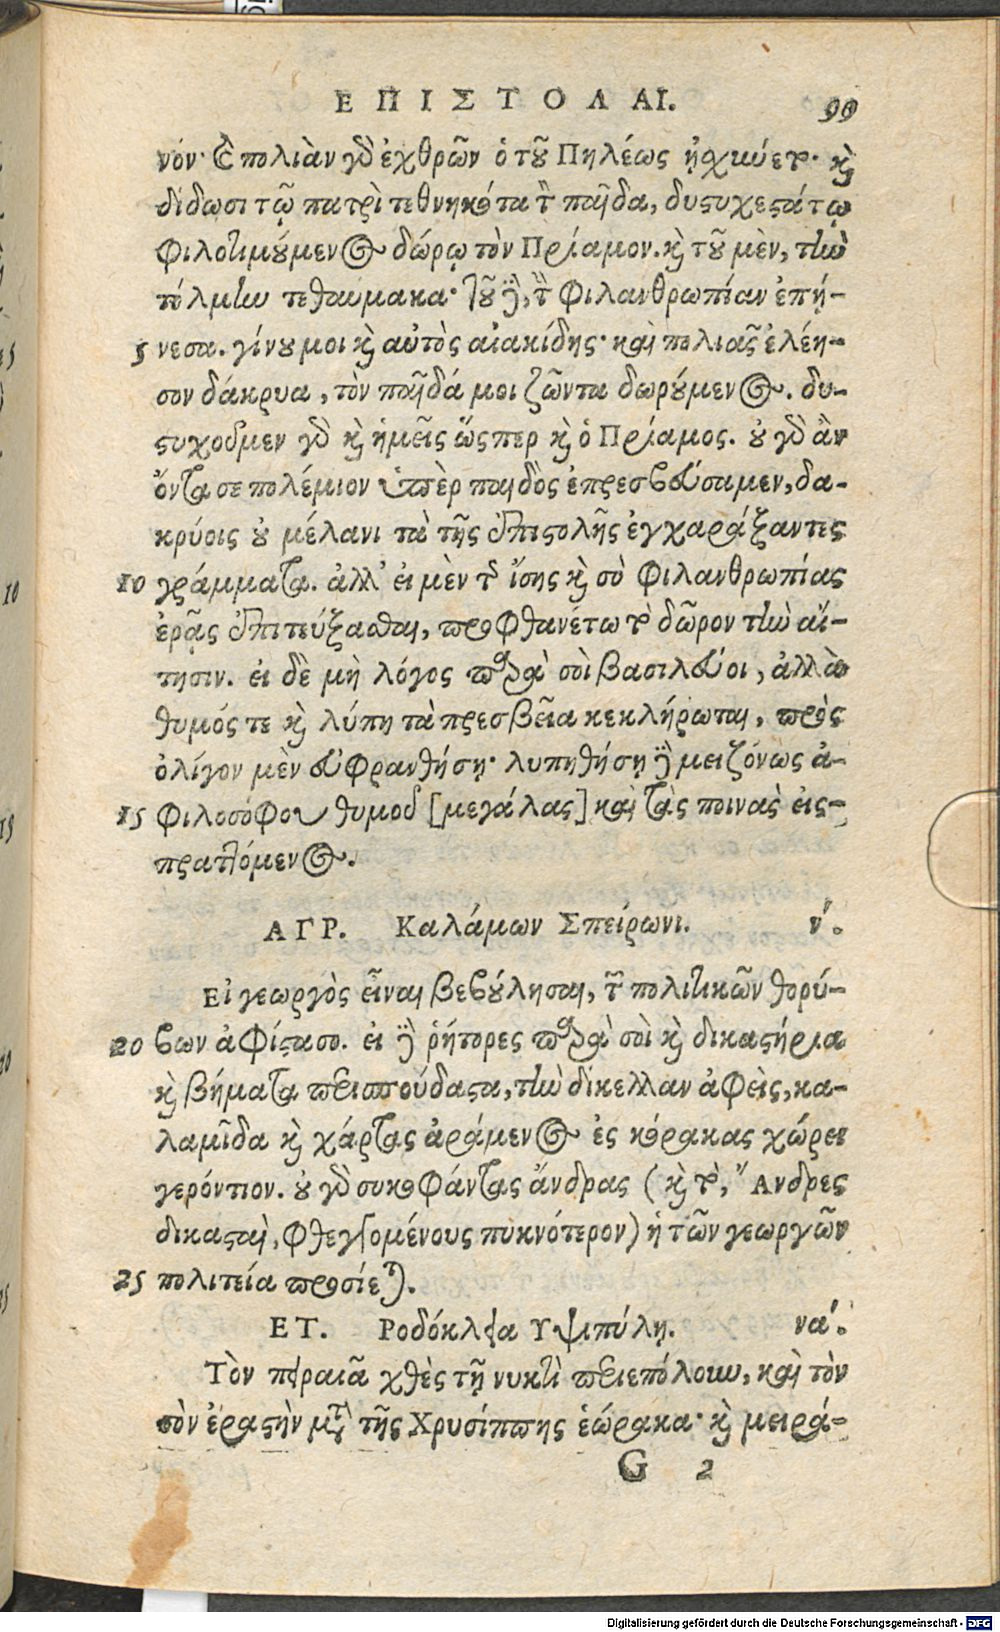 ΕΠΙΣΤΟΛΑΙ. 99
νόν· καὶ πολιὰν γὸ ἐχθρῶν ὁ τοῦ Πηλέως ᾐσχύνετο· καὶ
δίδωσι τῷ πατρὶ τεθνηκότα τὸν παῖδα, δυστυχεστάτῳ
φιλοτιμούμενος δώρῳ τὸν Πρίαμον. καὶ τοῦ μὲν, τὴν
τόλμην τεθαύμακα· τοῦ δὲ, τὴν φιλανθρωπίαν ἐπῄ-
5 νεσα. γίνου μοι καὶ αὐτὸς αἰακίδης· καὶ πολιᾶς ἐλέη-
σον δάκρυα, τὸν παῖδά μοι ζῶντα δωρούμενος. δυ-
στυχοῦμεν γὸ καὶ ἡμεῖς ὥσπερ καὶ ὁ Πρίαμος. οὐ γὸ ἂν
ὄντα σε πολέμιον ὑπὲρ παιδὸς ἐπρεσβεύσαμεν, δα-
κρύοις οὐ μέλανι τὰ τῆς ἐπιστολῆς ἐγχαράξαντες
10 γράμματα. ἀλλ' εἰ μὲν τῆς ἴσης καὶ σὺ φιλανθρωπίας
ἐρᾷς ἐπιτεύξασθαι, προφθανέτω τὸ δῶρον τὴν αἴ-
τησιν. εἰ δὲ μὴ λόγος παρὰ σοὶ βασιλεύοι, ἀλλὰ
θυμός τε καὶ λύπη τὰ πρεσβεῖα κεκλήρωται, πρὸς
ὀλίγον μὲν εὐφρανθήσῃ· λυπηθήσῃ δὲ μειζόνως ἀ-
15 φιλοσόφου θυμοῦ [μεγάλας] καὶ τὰς ποινὰς εἰς-
πραττόμενος.
ΑΓΡ. Καλάμων Σπείρωνι. ν΄.
Εἰ γεωργὸς εἶναι βεβούλησαι, τῶν πολιτικῶν θορύ-
20 βων ἀφίστασο. εἰ δὲ ῥήτορες παρὰ σοὶ καὶ δικαστήρια
καὶ βήματα περισπούδαστα, τὴν δίκελλαν ἀφεὶς, κα-
λαμῖδα καὶ χάρτας ἀράμενος ἐς κόρακας χώρει
γερόντιον. οὐ γὸ συκοφάντας ἄνδρας (καὶ τὸ, Ἄνδρες
δικασταὶ, φθεγξομένους πυκνότερον) ἡ τῶν γεωργῶν
25 πολιτεία προσίεται.
ΕΤ. Ροδόκλεια Υψιπύλῃ. να΄.
Τὸν πειραιᾶ χθὲς τῇ νυκτὶ περιεπόλουν, καὶ τὸν
σὸν ἐραστὴν μετὰ τῆς Χρυσίππης ἑώρακα· καὶ μειρά-
G 2
Digitalisierung gefördert durch die Deutsche Forschungsgemeinschaft - DFG